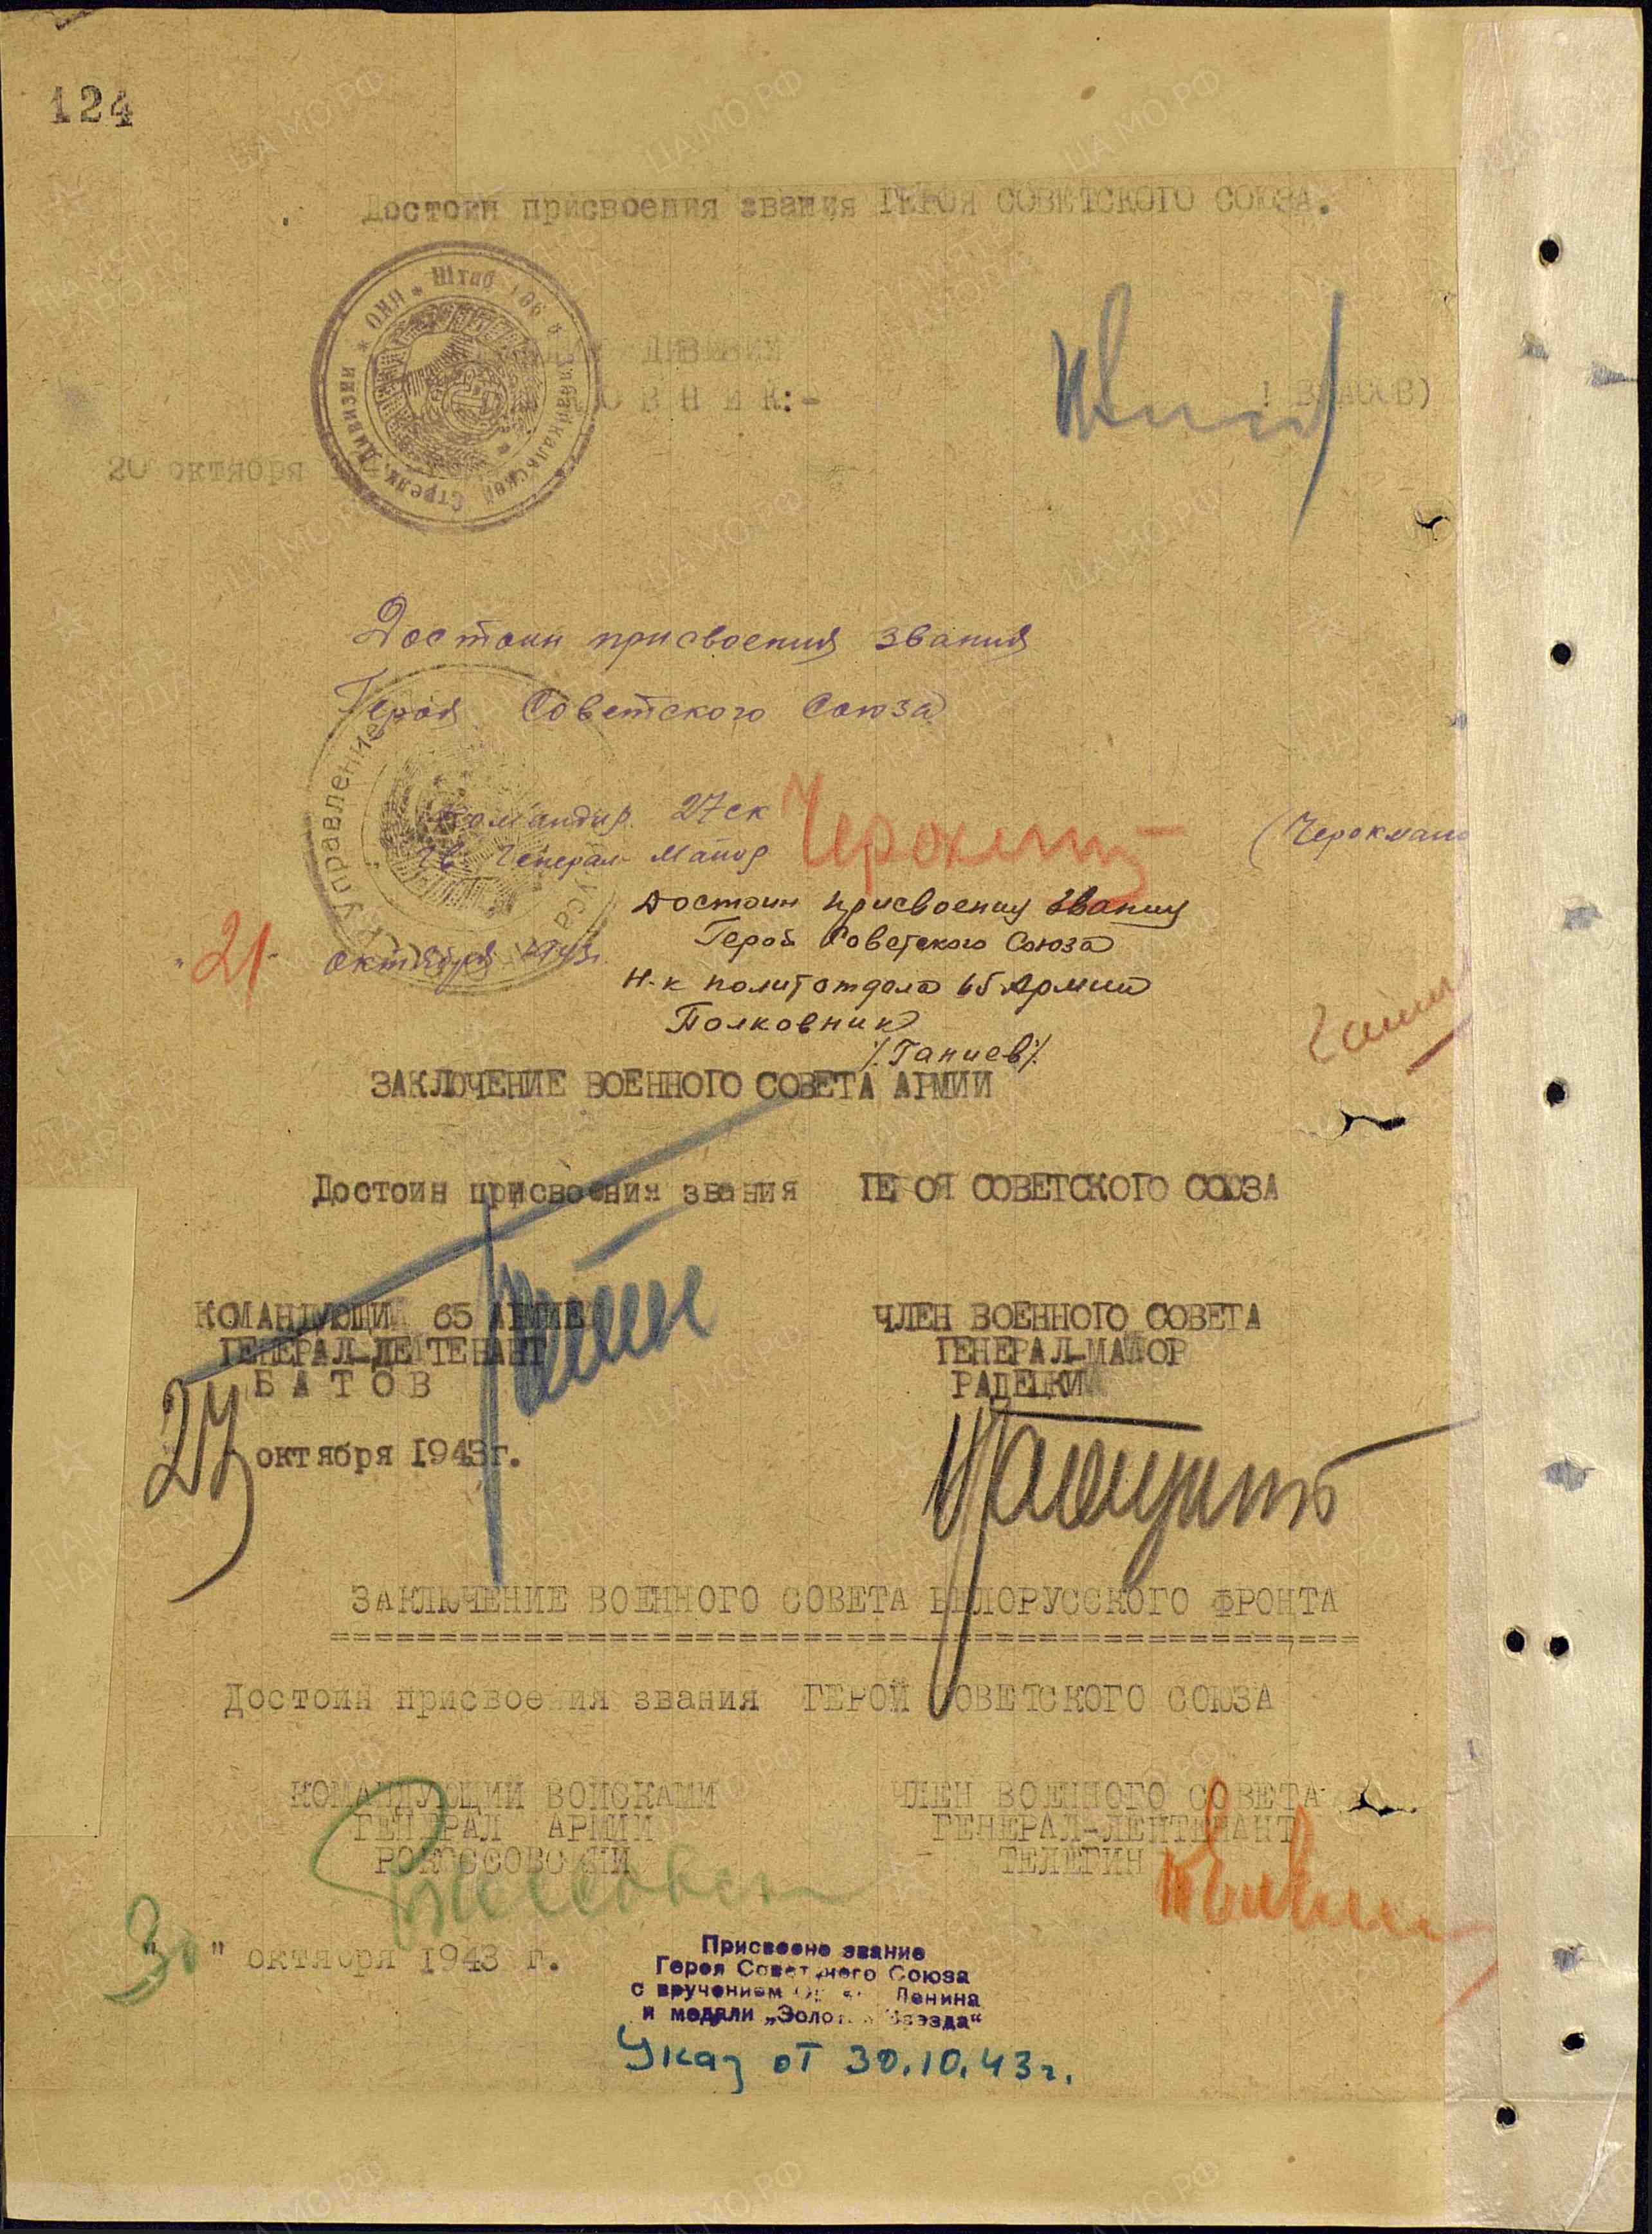 124
Достоин присвоения звания ГЕРОЯ СОВЕТСКОГО СОЮЗА.
ДИВИЗИИ
ОВНИК:-
ВЛАСОВ)
20 октября
Штаб 106 Забайкальской Стрелк. Дивизии * НКО *
Достоин присвоения звания
Героя Советского Союза
Управление
Командир 27 ск
Гв. Генерал-Майор
(Черокмано
"21" октября 1943г.
Достоин присвоения звания
Герой Советского Союза
Н-к политотдела 65 Армии
Полковник
/.Ганиев/.
ЗАКЛЮЧЕНИЕ ВОЕННОГО СОВЕТА АРМИИ
Достоин присвоения звания ГЕРОЯ СОВЕТСКОГО СОЮЗА
КОМАНДУЮЩИЙ 65 АРМИЕЙ
ГЕНЕРАЛ-ЛЕЙТЕНАНТ
БАТОВ
ЧЛЕН ВОЕННОГО СОВЕТА
ГЕНЕРАЛ-МАЙОР
РАДЕЦКИЙ
27 октября 1943г.
ЗАКЛЮЧЕНИЕ ВОЕННОГО СОВЕТА БЕЛОРУССКОГО ФРОНТА
Достоин присвоения звания ГЕРОЙ СОВЕТСКОГО СОЮЗА
КОМАНДУЮЩИЙ ВОЙСКАМИ
ГЕНЕРАЛ АРМИИ
РОКОССОВСКИЙ
ЧЛЕН ВОЕННОГО СОВЕТА
ГЕНЕРАЛ-ЛЕЙТЕНАНТ
ТЕЛЕГИН
"30" октября 1943 г.
Присвоено звание
Героя Советского Союза
с вручением Ордена Ленина
и медали „Золотая Звезда“
Указ от 30.10.43г.